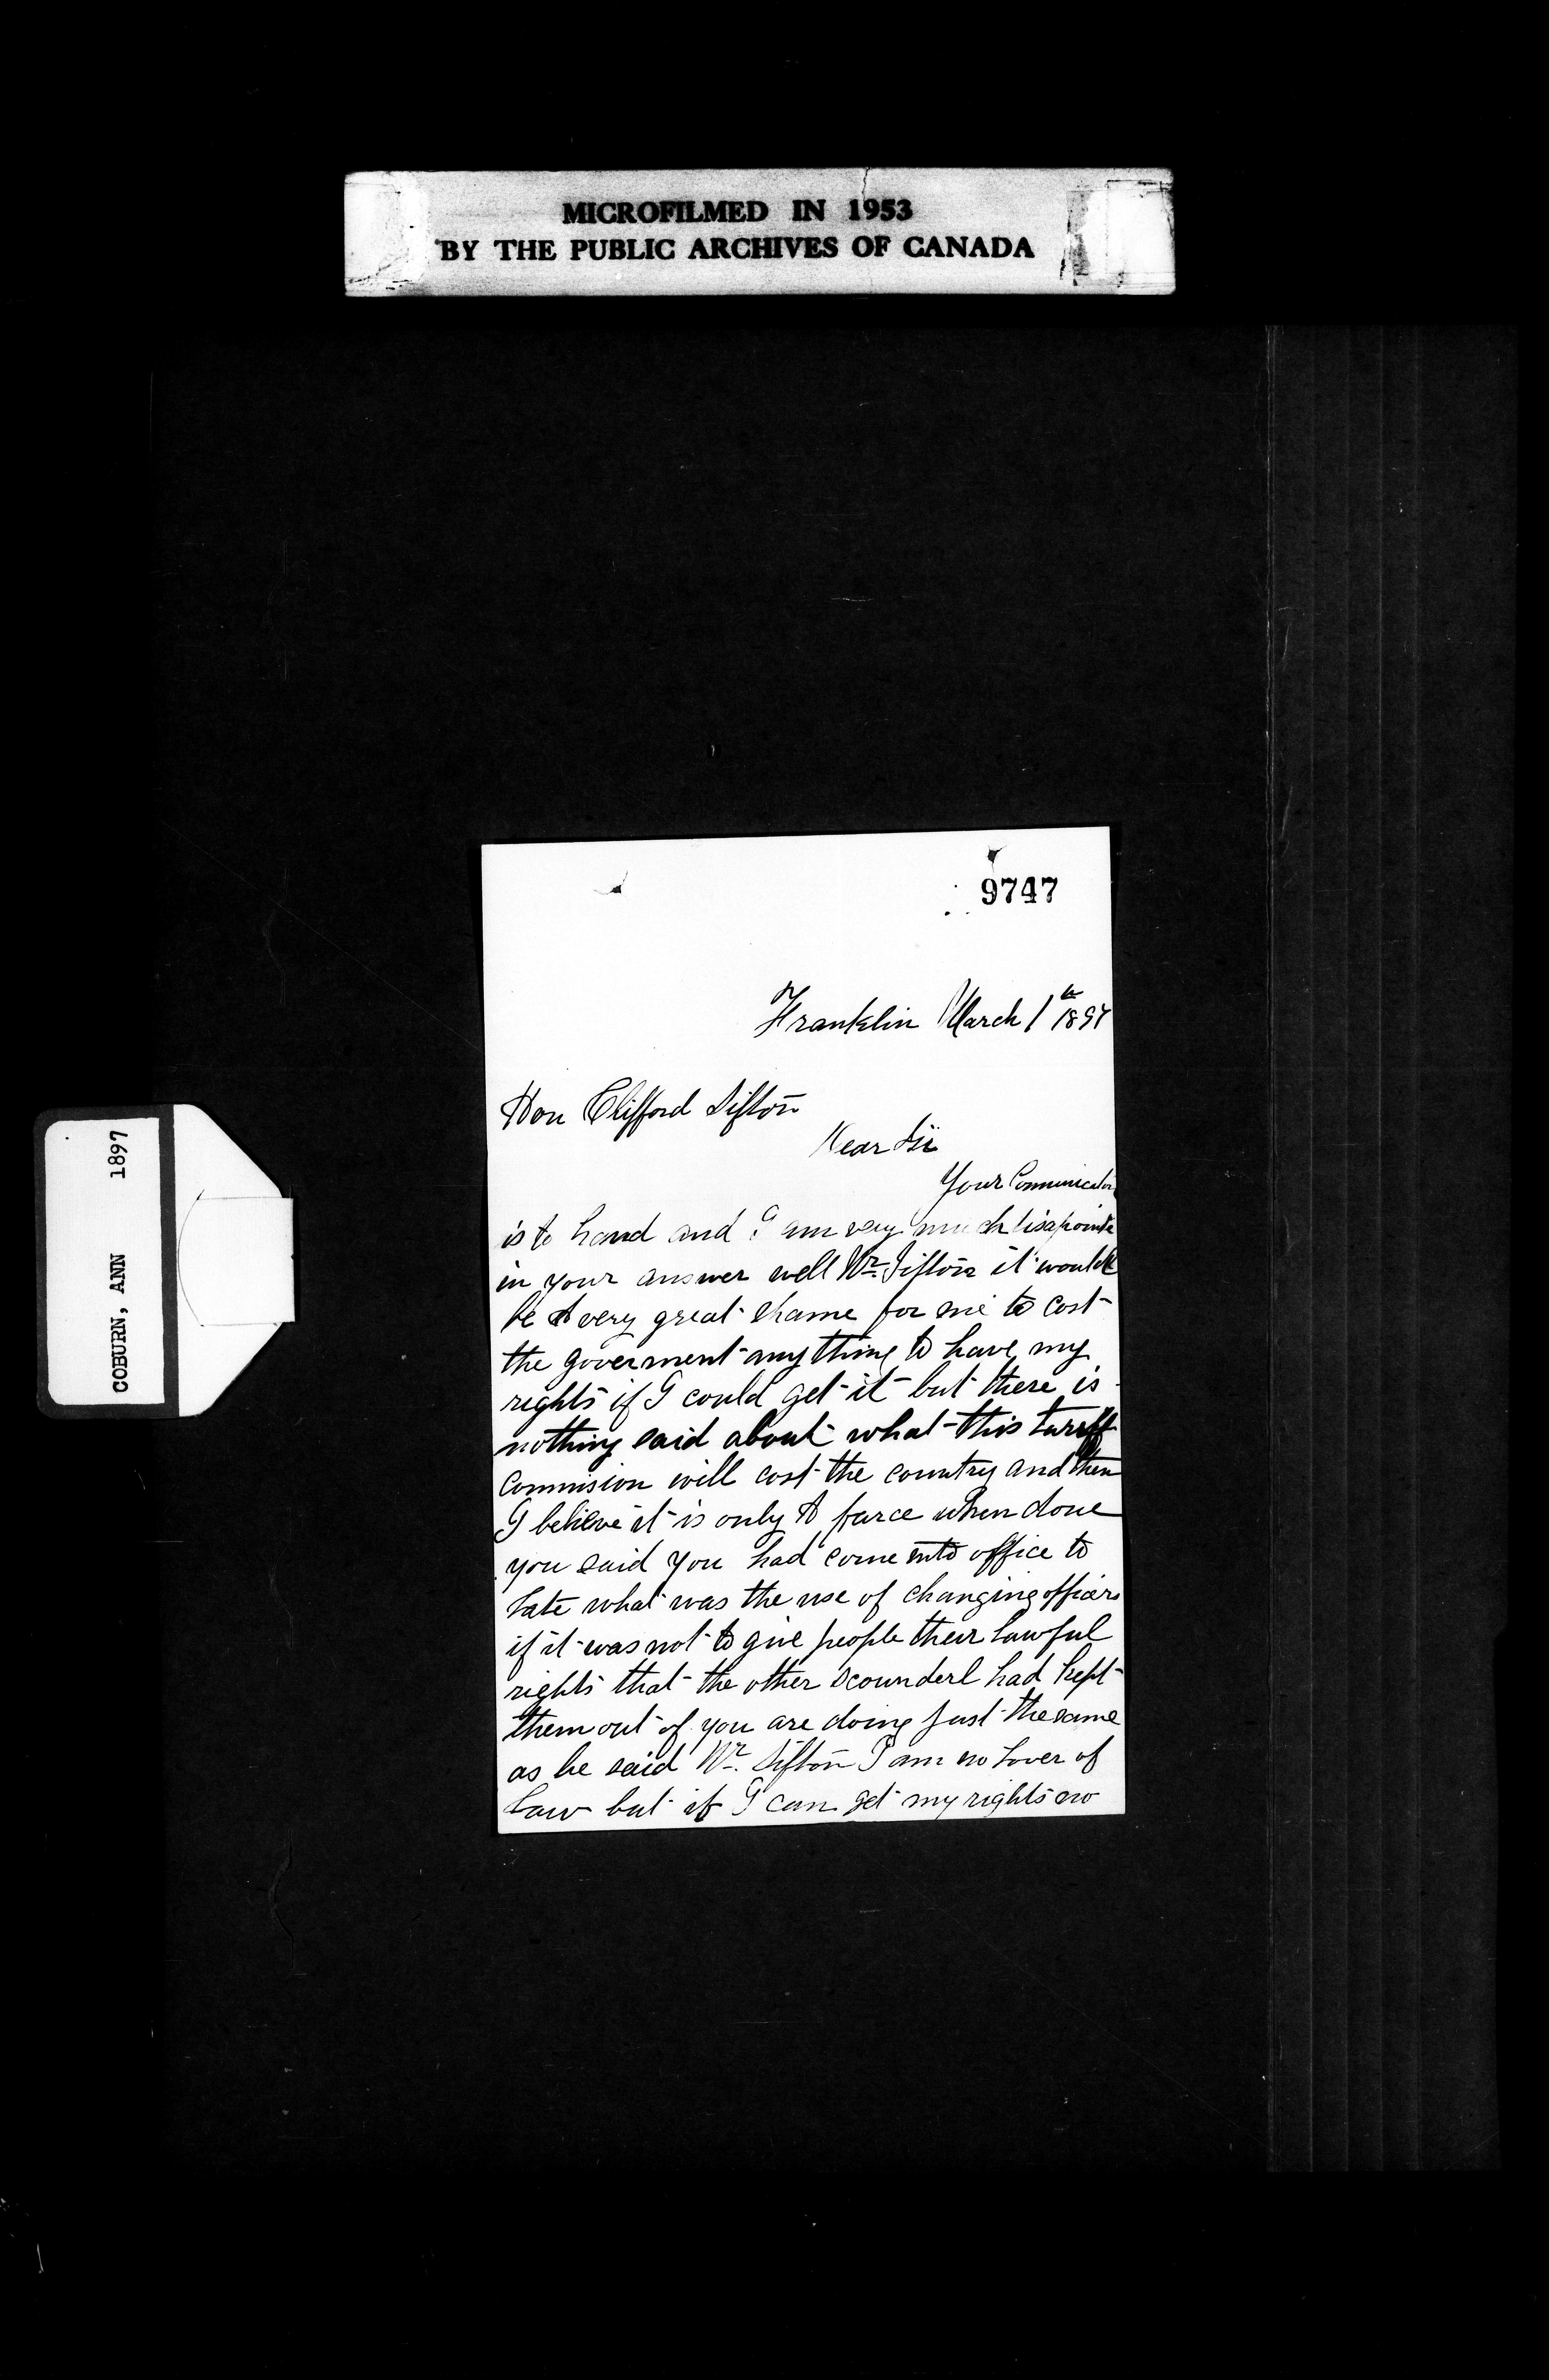 MICROFILMED IN 1953
BY THE PUBLIC ARCHIVES OF CANADA
COBURN, ANN 1897
9747
Franklin March 1th 1897
Hon Clifford Sifton
Dear Sir
Your Communication
is to hand and I am very much disapointe
in your answer well Mr. Sifton it would
be A very great shame for me to cost
the goverment anything to have my
rights if I could get it but there is
nothing said about what this tariff
Commision will cost the country and then
I believe it is only A farce when done
you said you had come into office to
late what was the use of changing officers
if it was not to give people their lawful
rights that the other scounderl had kept
them out of you are doing just the same
as he said Mr. Sifton I am no lover of
law but if I can get my rights no